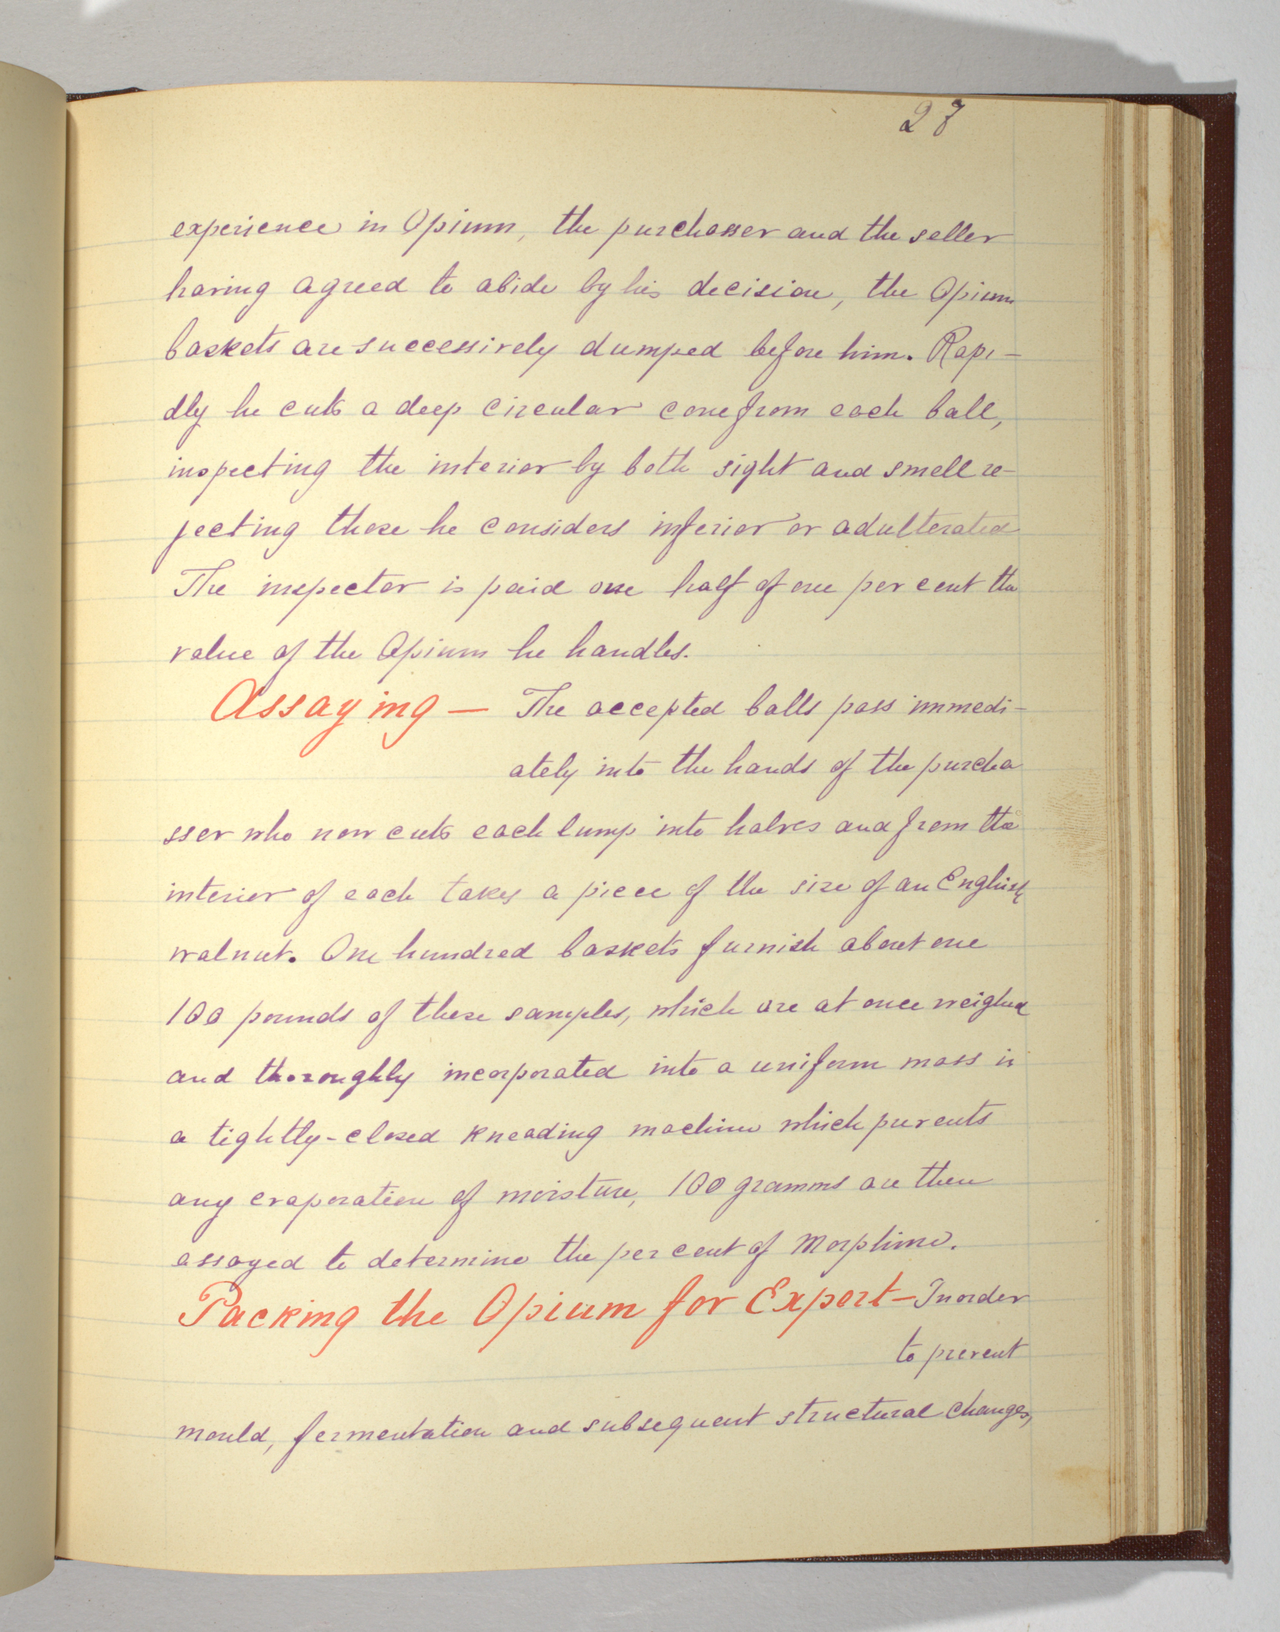 27
experience in Opium, the purchasser and the seller
having agreed to abide by his decision, the Opium
baskets are successively dumped before him. Rapi-
dly he cuts a deep circular cone from each ball,
inspecting the interior by both sight and smell re-
jecting those he considers inferior or adulterated
The inspector is paid one half of one per cent the
value of the Opium he handles.
Assaying — The accepted balls pass immedi-
ately into the hands of the purcha
sser who now cuts each lump into halves and from the
interior of each takes a piece of the size of an English
walnut. One hundred baskets furnish about one
100 pounds of these samples, which are at once weighed
and thoroughly incorporated into a uniform mass in
a tightly-closed kneading machine which prevents
any evaporation of moisture, 100 gramms are then
assayed to determine the per cent of Morphine.
Packing the Opium for Export — In order
to prevent
mould, fermentation and subsequent structural changes,